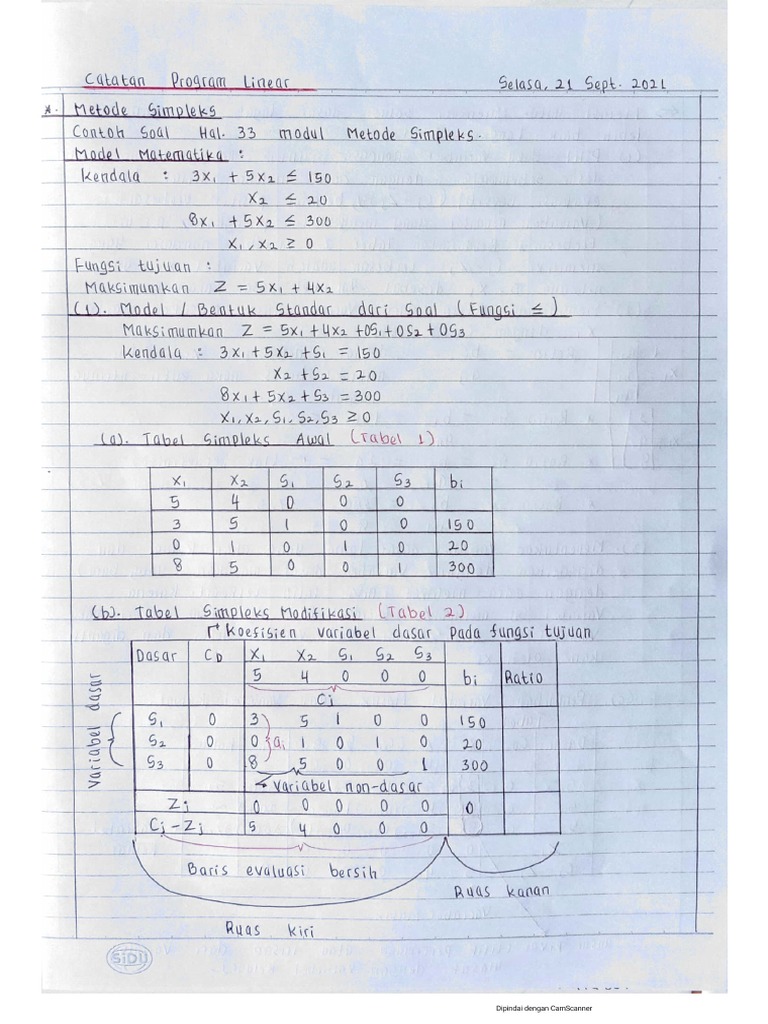 Catatan Program Linear Selasa, 21 Sept. 2021
*. Metode Simpleks
Contoh Soal Hal. 33 modul Metode Simpleks.
Model Matematika :
Kendala : 3x₁ + 5x₂ ≤ 150
x₂ ≤ 20
8x₁ + 5x₂ ≤ 300
x₁, x₂ ≥ 0
Fungsi tujuan :
Maksimumkan Z = 5x₁ + 4x₂
(1). Model / Bentuk Standar dari Soal (Fungsi ≤)
Maksimumkan Z = 5x₁ + 4x₂ + 0S₁ + 0S₂ + 0S₃
Kendala : 3x₁ + 5x₂ + S₁ = 150
x₂ + S₂ = 20
8x₁ + 5x₂ + S₃ = 300
x₁, x₂, S₁, S₂, S₃ ≥ 0
(a). Tabel Simpleks Awal (Tabel 1)
x₁ x₂ S₁ S₂ S₃ bi
5 4 0 0 0
3 5 1 0 0 150
0 1 0 1 0 20
8 5 0 0 1 300
(b). Tabel Simpleks Modifikasi (Tabel 2)
Koefisien variabel dasar pada fungsi tujuan
Dasar C_D x₁ x₂ S₁ S₂ S₃
5 4 0 0 0 bi Ratio
Cj
Variabel dasar
S₁ 0 3 5 1 0 0 150
S₂ 0 0 ai 1 0 1 0 20
S₃ 0 8 5 0 0 1 300
Variabel non-dasar
Zj 0 0 0 0 0 0
Cj - Zj 5 4 0 0 0
Baris evaluasi bersih
Ruas kanan
Ruas kiri
SIDU
Dipindai dengan CamScanner